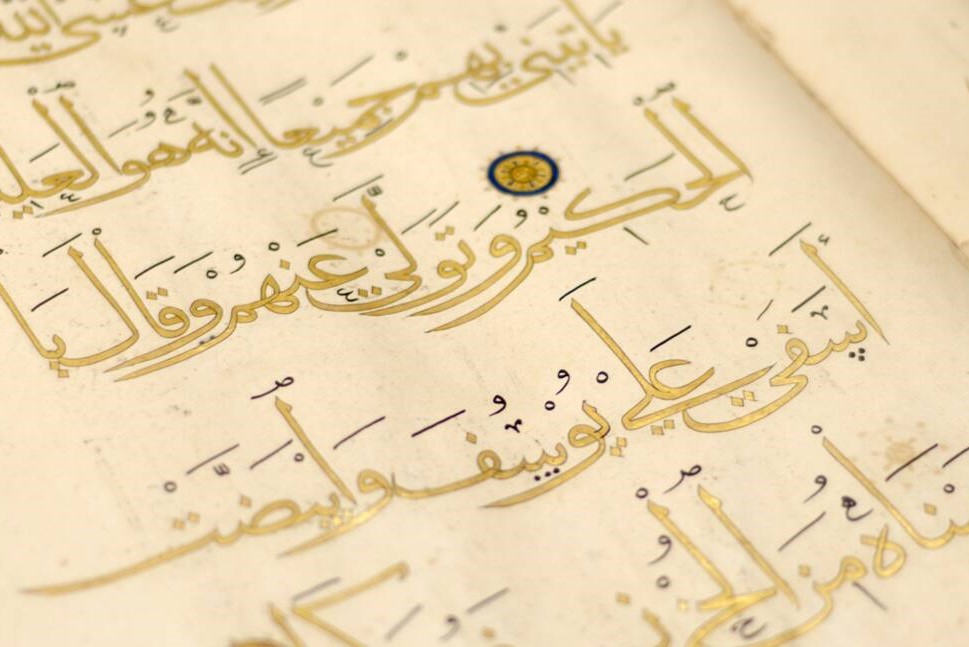 عسى الله
يَأْتِيَنِي بِهِمْ جَمِيعًا إِنَّهُ هُوَ الْعَلِيمُ
الْحَكِيمُ وَتَوَلَّىٰ عَنْهُمْ وَقَالَ يَا
أَسَفَىٰ عَلَىٰ يُوسُفَ وَابْيَضَّتْ
عَيْنَاهُ مِنَ الْحُزْنِ